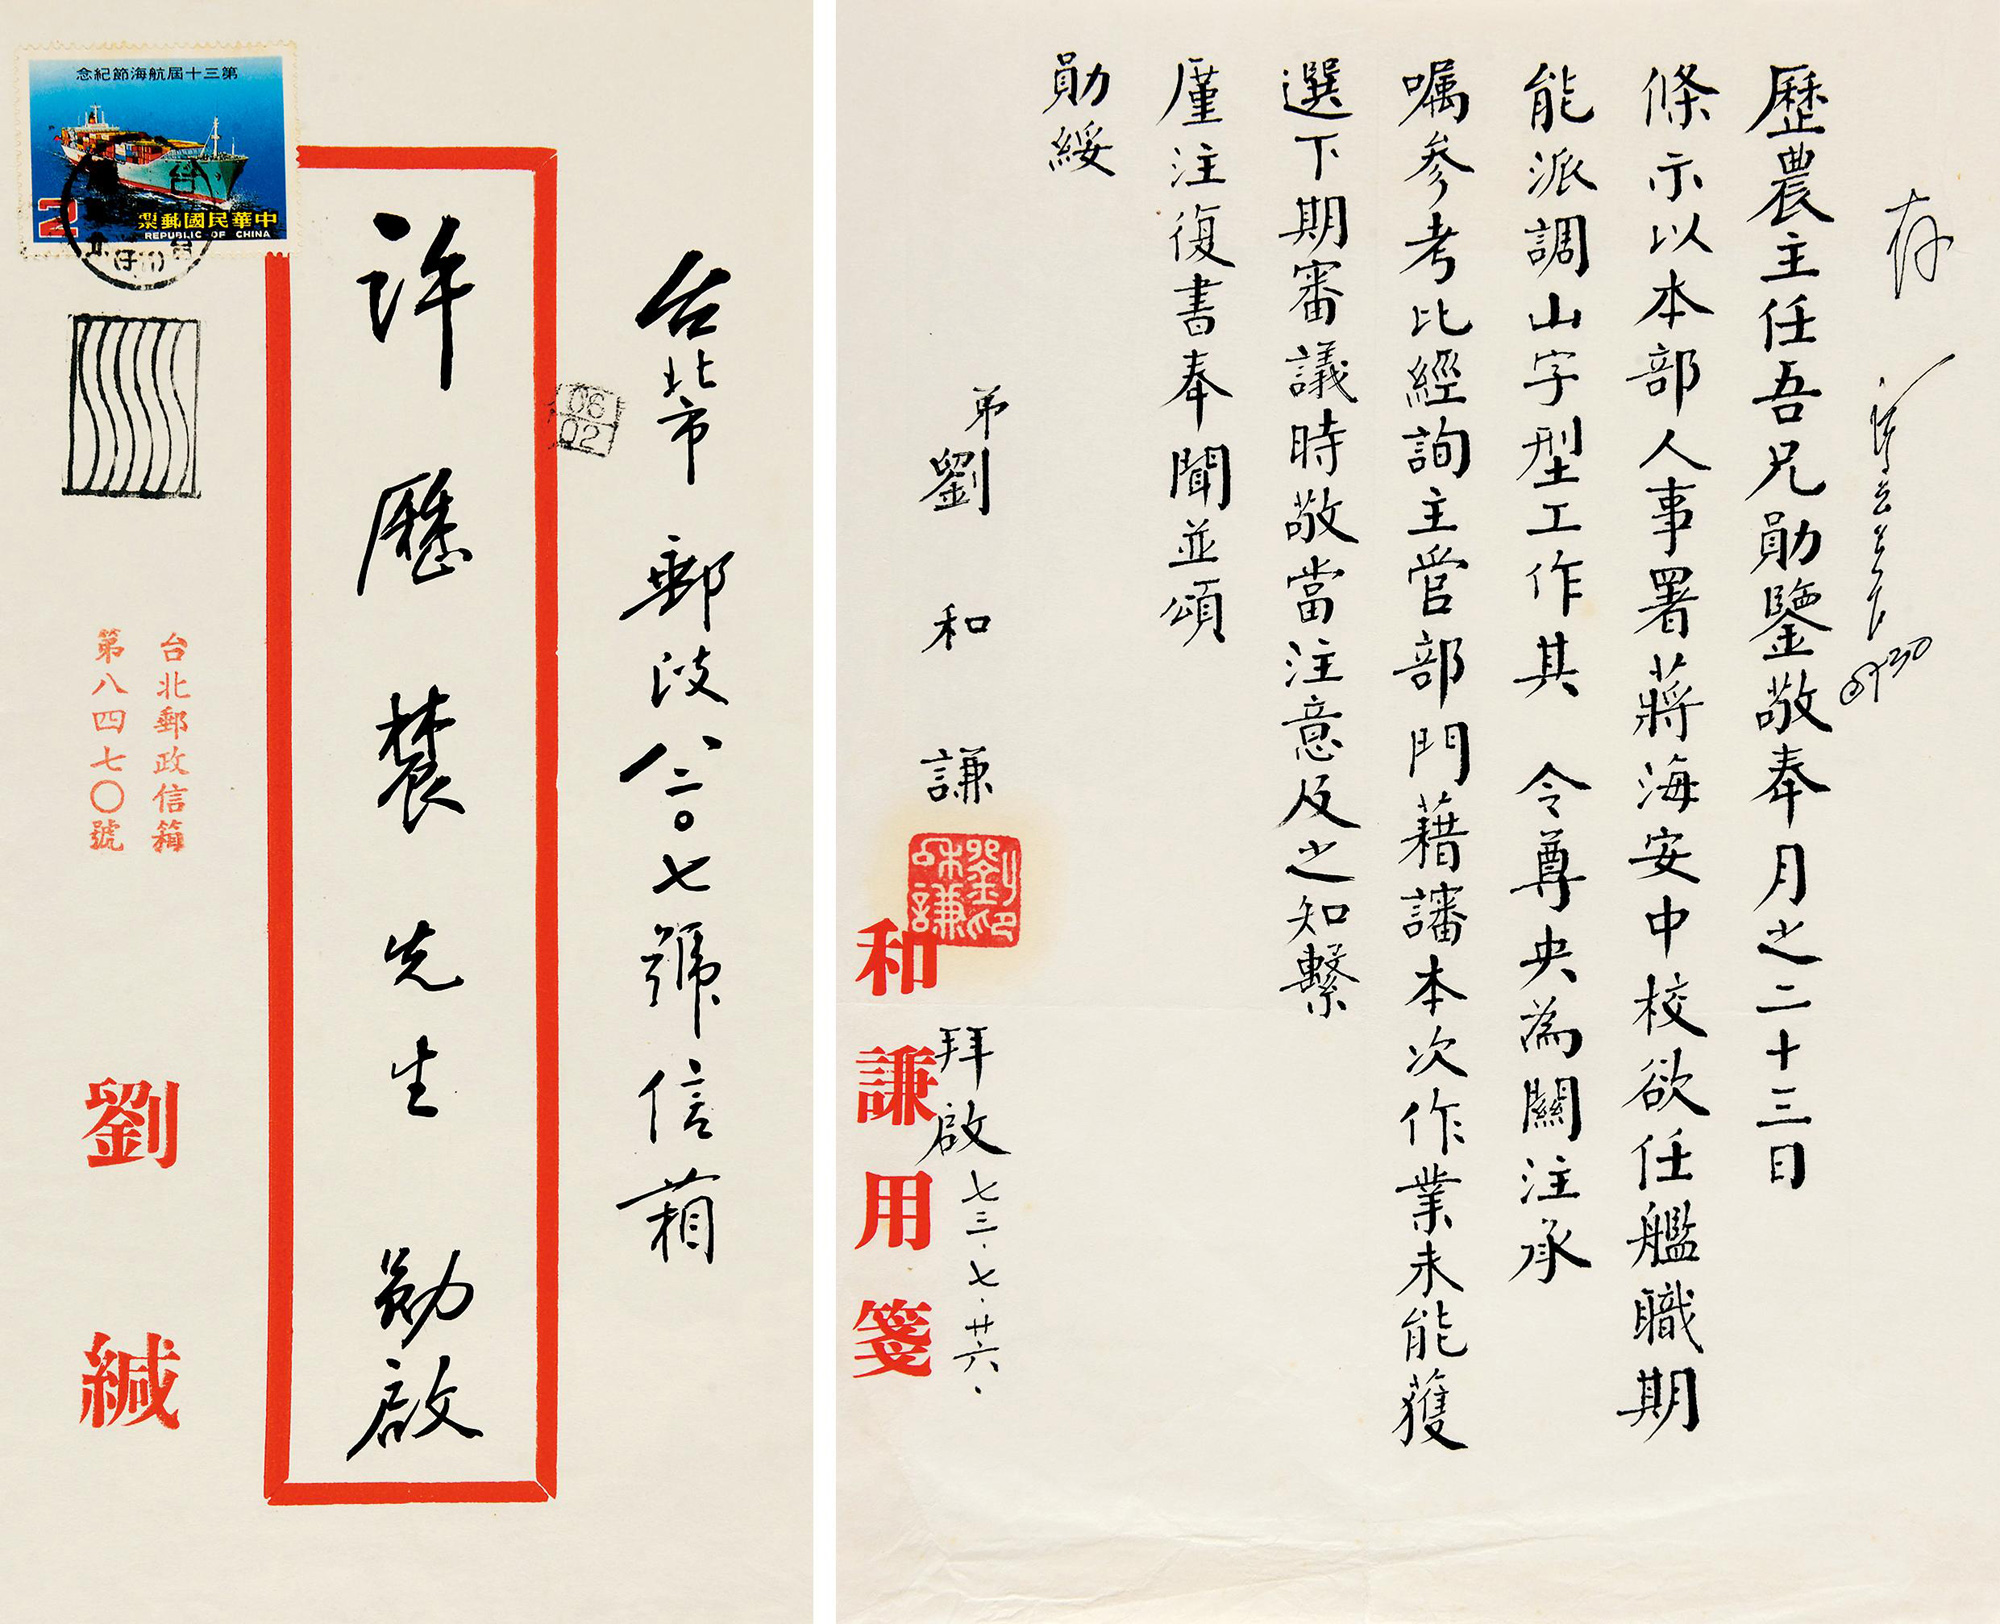 第三十屆航海節紀念
2
中華民國郵票
REPUBLIC OF CHINA
06
02
台北市郵政八二〇七號信箱
許歷農先生 勛啟
台北郵政信箱
第八四七〇號
劉緘
存
歷農主任吾兄勛鑒敬奉月之二十三日
條示以本部人事署蔣海安中校欲任艦職期
能派調山字型工作其 令尊央為關注承
嘱參考比經詢主管部門藉讅本次作業未能獲
選下期審議時敬當注意及之知繫
廑注復書奉聞並頌
勛綏
弟劉和謙
拜啟七三.七.廿六.
劉和謙印
和謙用箋